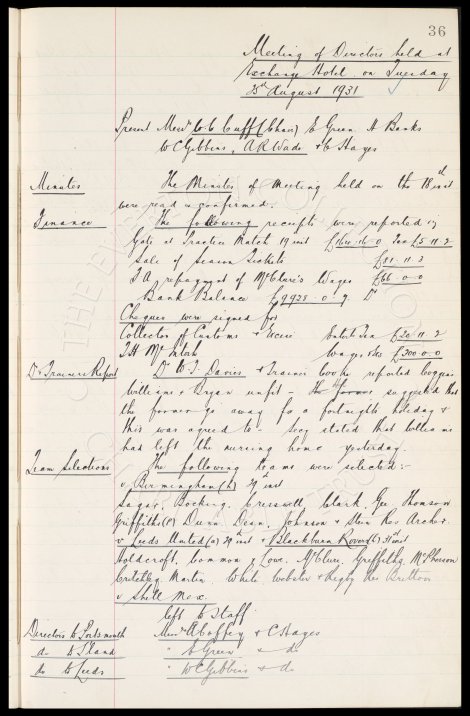 36
Meeting of Directors held at
Exchange Hotel on Tuesday
25th August 1931
Present Messrs W.C. Cuff (Chair) E Green H Banks
W C Gibbins, A R Wade & C Hayes
Minutes The Minutes of Meeting held on the 18th inst
were read & confirmed.
Finance The following receipts were reported :-
Gate at Practice Match 19 inst Tax £5-11-2
Sale of Season Tickets £81-11-3
F A repayment of McClure's Wages £66-0-0
Bank Balance £9938-0-9 Dr
Cheques were signed for
Collector of Customs & Excise £20-11-2
J H McIntosh Wages £300-0-0
Dr & Trainers Report Dr W J Davies & Trainer Cooke reported Coggins
Williams & Bryan unfit - suggested that
the former go away for a fortnights holiday &
this was agreed to - Secy stated that Williams
had left the nursing home yesterday.
Team Selections The following teams were selected :-
v Birmingham (h) 29th inst
Sagar, Bocking Cresswell, Clark Gee Thomson
Griffiths (P) Dunn Dean, Johnson & Stein Res Archer.
v Leeds United (a) 29th inst & Blackburn Rovers (h) 31st inst
Holdcroft, Common & Lowe, McClure, Griffiths, McPherson
Critchley Martin, White Webster & Rigby Res Britton
v Shell Mex.
left to Staff
Directors to Portsmouth Messrs A Coffey & C Hayes
do to S'land " E Green & do
do to Leeds " W C Gibbins & do